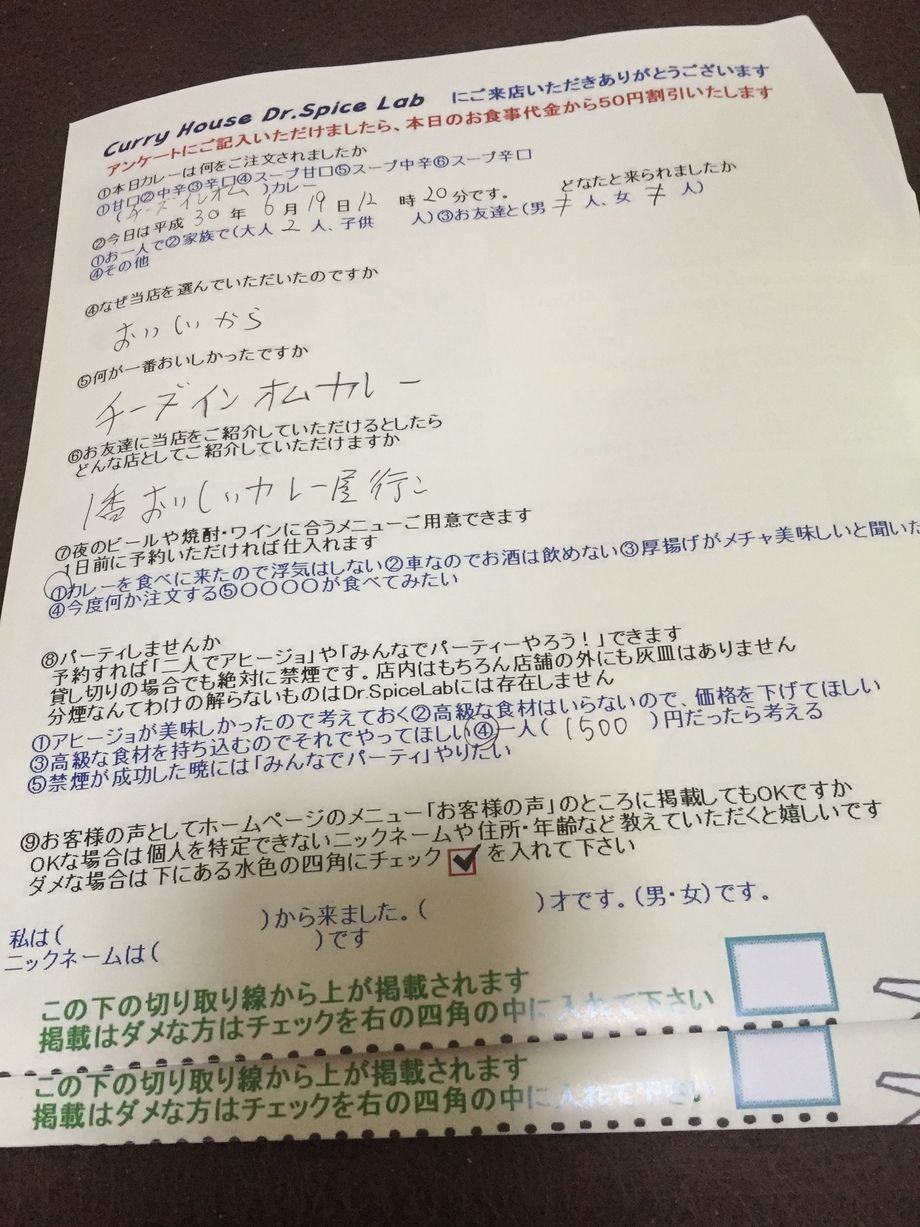 Curry House Dr.Spice Lab にご来店いただきありがとうございます
アンケートにご記入いただけましたら、本日のお食事代金から50円割引いたします
①本日カレーは何をご注文されましたか
①甘口②中辛③辛口④スープ甘口⑤スープ中辛⑥スープ辛口
(チーズインオム)カレー
②今日は平成 30 年 6 月 19 日 12 時 20 分です。 どなたと来られましたか
①お一人で②家族で(大人 2 人、子供 人)③お友達と(男 人、女 人)
④その他
④なぜ当店を選んでいただいたのですか
おいしいから
⑤何が一番おいしかったですか
チーズインオムカレー
⑥お友達に当店をご紹介していただけるとしたら
どんな店としてご紹介していただけますか
1番おいしいカレー屋行こ
⑦夜のビールや焼酎・ワインに合うメニューご用意できます
1日前に予約いただければ仕入れます
①カレーを食べに来たので浮気はしない②車なのでお酒は飲めない③厚揚げがメチャ美味しいと聞いた
④今度何か注文する⑤〇〇〇〇が食べてみたい
⑧パーティしませんか
予約すれば「二人でアヒージョ」や「みんなでパーティーやろう!」できます
貸し切りの場合でも絶対に禁煙です。店内はもちろん店舗の外にも灰皿はありません
分煙なんてわけの解らないものはDr.SpiceLabには存在しません
①アヒージョが美味しかったので考えておく②高級な食材はいらないので、価格を下げてほしい
③高級な食材を持ち込むのでそれでやってほしい④一人( 1500 )円だったら考える
⑤禁煙が成功した暁には「みんなでパーティ」やりたい
⑨お客様の声としてホームページのメニュー「お客様の声」のところに掲載してもOKですか
OKな場合は個人を特定できないニックネームや住所・年齢など教えていただくと嬉しいです
ダメな場合は下にある水色の四角にチェック を入れて下さい
私は( )から来ました。( )才です。(男・女)です。
ニックネームは( )です
この下の切り取り線から上が掲載されます
掲載はダメな方はチェックを右の四角の中に入れて下さい
この下の切り取り線から上が掲載されます
掲載はダメな方はチェックを右の四角の中に入れて下さい